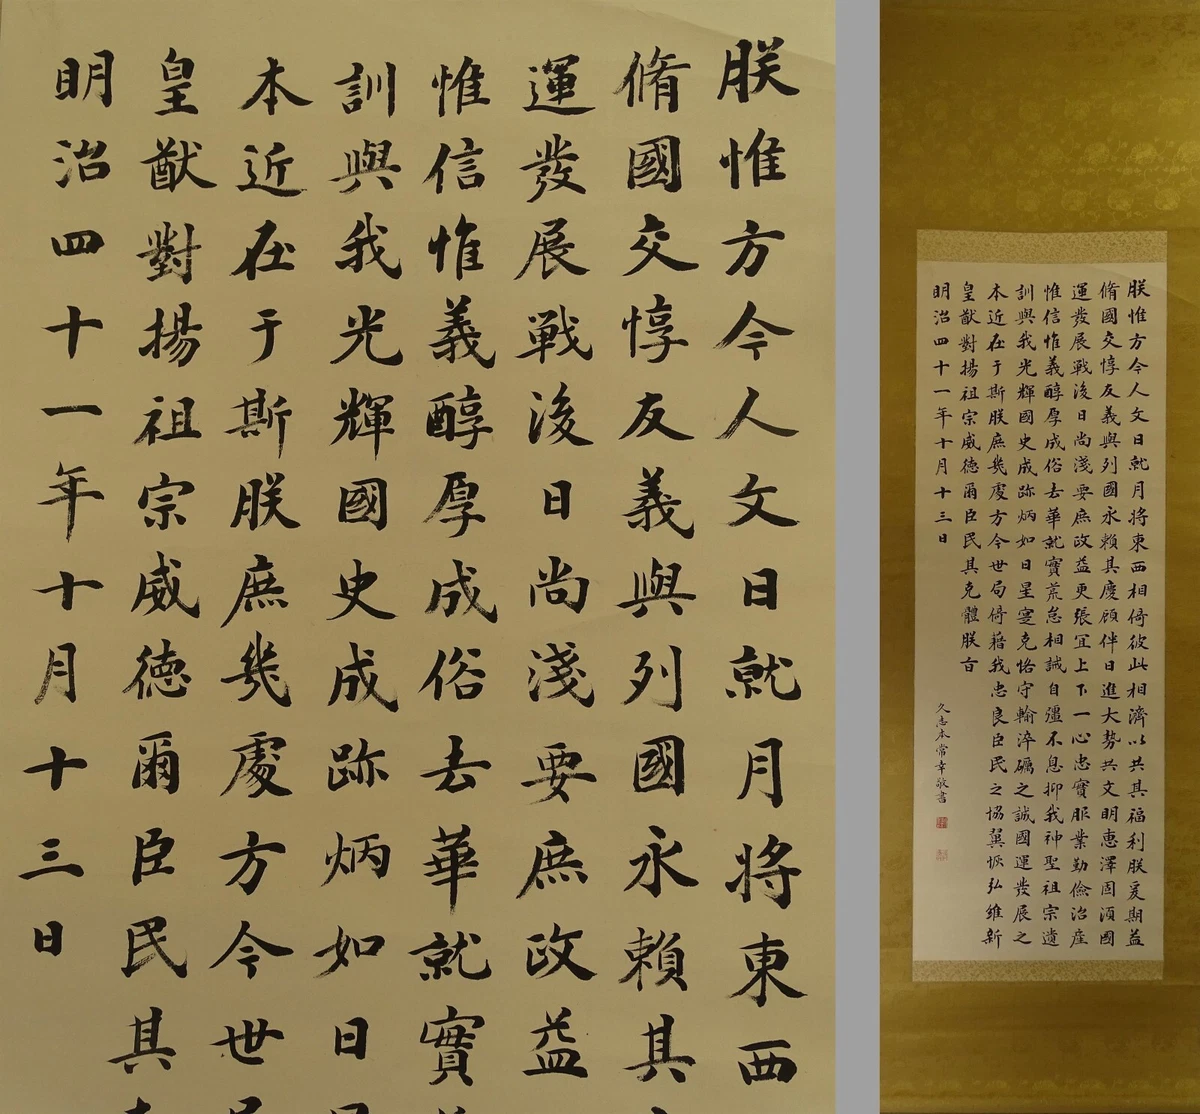 朕惟方今人文日就月將東西
脩國交惇友義與列國永賴其
運發展戦後日尚淺要庶政益
惟信惟義醇厚成俗去華就實
訓與我光輝國史成跡炳如日
本近在于斯朕庶幾處方今世
皇猷對揚祖宗威德爾臣民其
明治四十一年十月十三日
朕惟方今人文日就月將東西相倚彼此相濟以共其福利朕爰期益
脩國交惇友義與列國永賴其慶顧伴日進大勢共文明惠澤固須國
運發展戦後日尚淺要庶政益更張宜上下一心忠實服業勤儉治産
惟信惟義醇厚成俗去華就實荒怠相誡自彊不息抑我神聖祖宗遺
訓與我光輝國史成跡炳如日星寔克恪守輸淬礪之誠國運發展之
本近在于斯朕庶幾處方今世局倚藉我忠良臣民之協翼恢弘維新
皇猷對揚祖宗威德爾臣民其克體朕旨
明治四十一年十月十三日
久志本常幸敬書